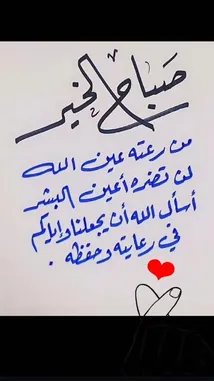 صباح الخير
من رعته عين الله
لن تضره أعين البشر
أسأل الله أن يجعلنا وإياكم
في رعايته وحفظه .